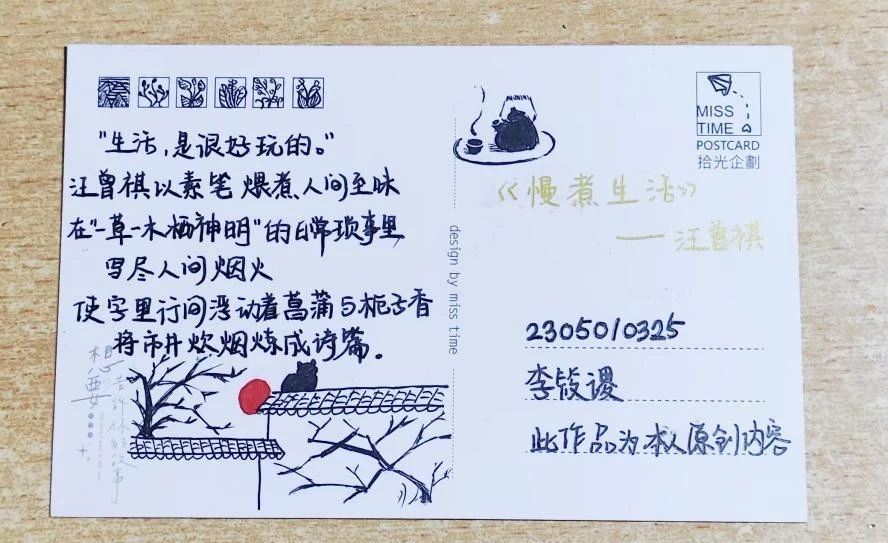 "生活,是很好玩的。"
汪曾祺以素笔煨煮人间至味
在"一草一木栖神明"的日常琐事里
写尽人间烟火
使字里行间浮动着菖蒲与栀子香
将市井炊烟炼成诗篇。
想要
design by miss time
MISS
TIME
POSTCARD
拾光企劃
《慢煮生活》
——汪曾祺
2305010325
李筱谡
此作品为本人原创内容